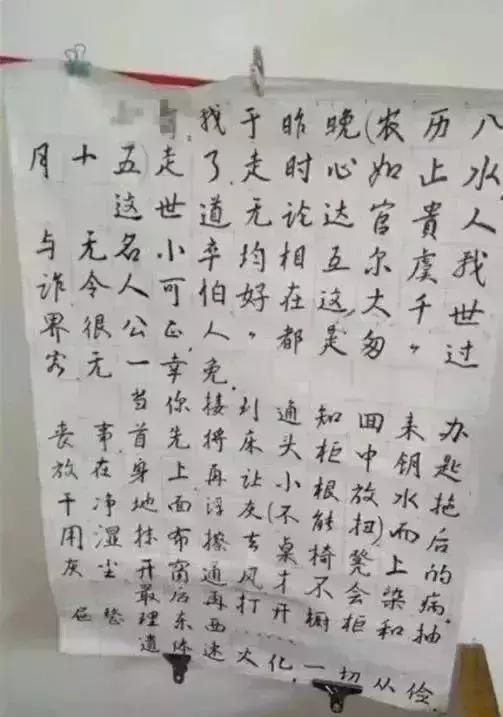 我于昨晚(农历八
月十五)走了.走时心如止水.
这世道无论达官貴人
与无名小卒均相互尔虞我
诈.令人可怕好在这大千世
界很公正,人人都是匆匆过
客无一幸免.
当你接到通知回来办
丧事首先将床头柜中钥匙
放在身上再让小根放水拖
干净地面浮灰(不能扭)而后
用湿抹布擦去桌椅凳上的
灰尘开窗通风才不会染病.
最后再打开橱柜和抽
屉整理东西……
遗体速火化,一切从俭.